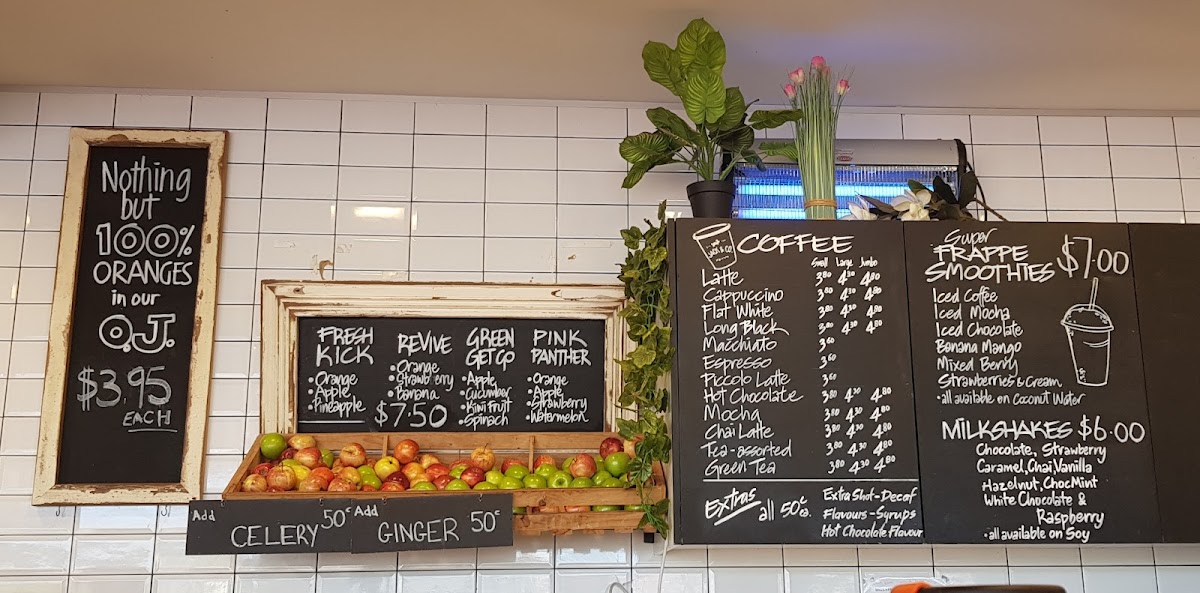 Nothing
but
100%
ORANGES
in our
O.J.
$3.95
EACH
FRESH
KICK
• Orange
• Apple
• Pineapple
REVIVE
• Orange
• Strawberry
• Banana
$7.50
GREEN
GET GO
• Apple
• Cucumber
• Kiwi Fruit
• Spinach
PINK
PANTHER
• Orange
• Apple
• Strawberry
• Watermelon
Add
CELERY 50¢
Add
GINGER 50¢
COFFEE
Small Large Jumbo
Latte 3.80 4.30 4.80
Cappuccino 3.80 4.30 4.80
Flat White 3.80 4.30 4.80
Long Black 3.80 4.30 4.80
Macchiato 3.60
Espresso 3.60
Piccolo Latte 3.60
Hot Chocolate 3.80 4.30 4.80
Mocha 3.80 4.30 4.80
Chai Latte 3.80 4.30 4.80
Tea - assorted 3.80 4.30 4.80
Green Tea 3.80 4.30 4.80
Extras all 50¢ ea.
Extra Shot - Decaf
Flavours - Syrups
Hot Chocolate Flavour
Super
FRAPPE
SMOOTHIES $7.00
Iced Coffee
Iced Mocha
Iced Chocolate
Banana Mango
Mixed Berry
Strawberries & Cream
• all available on Coconut Water
MILKSHAKES $6.00
Chocolate, Strawberry
Caramel, Chai, Vanilla
Hazelnut, Choc Mint
White Chocolate &
Raspberry
• all available on Soy